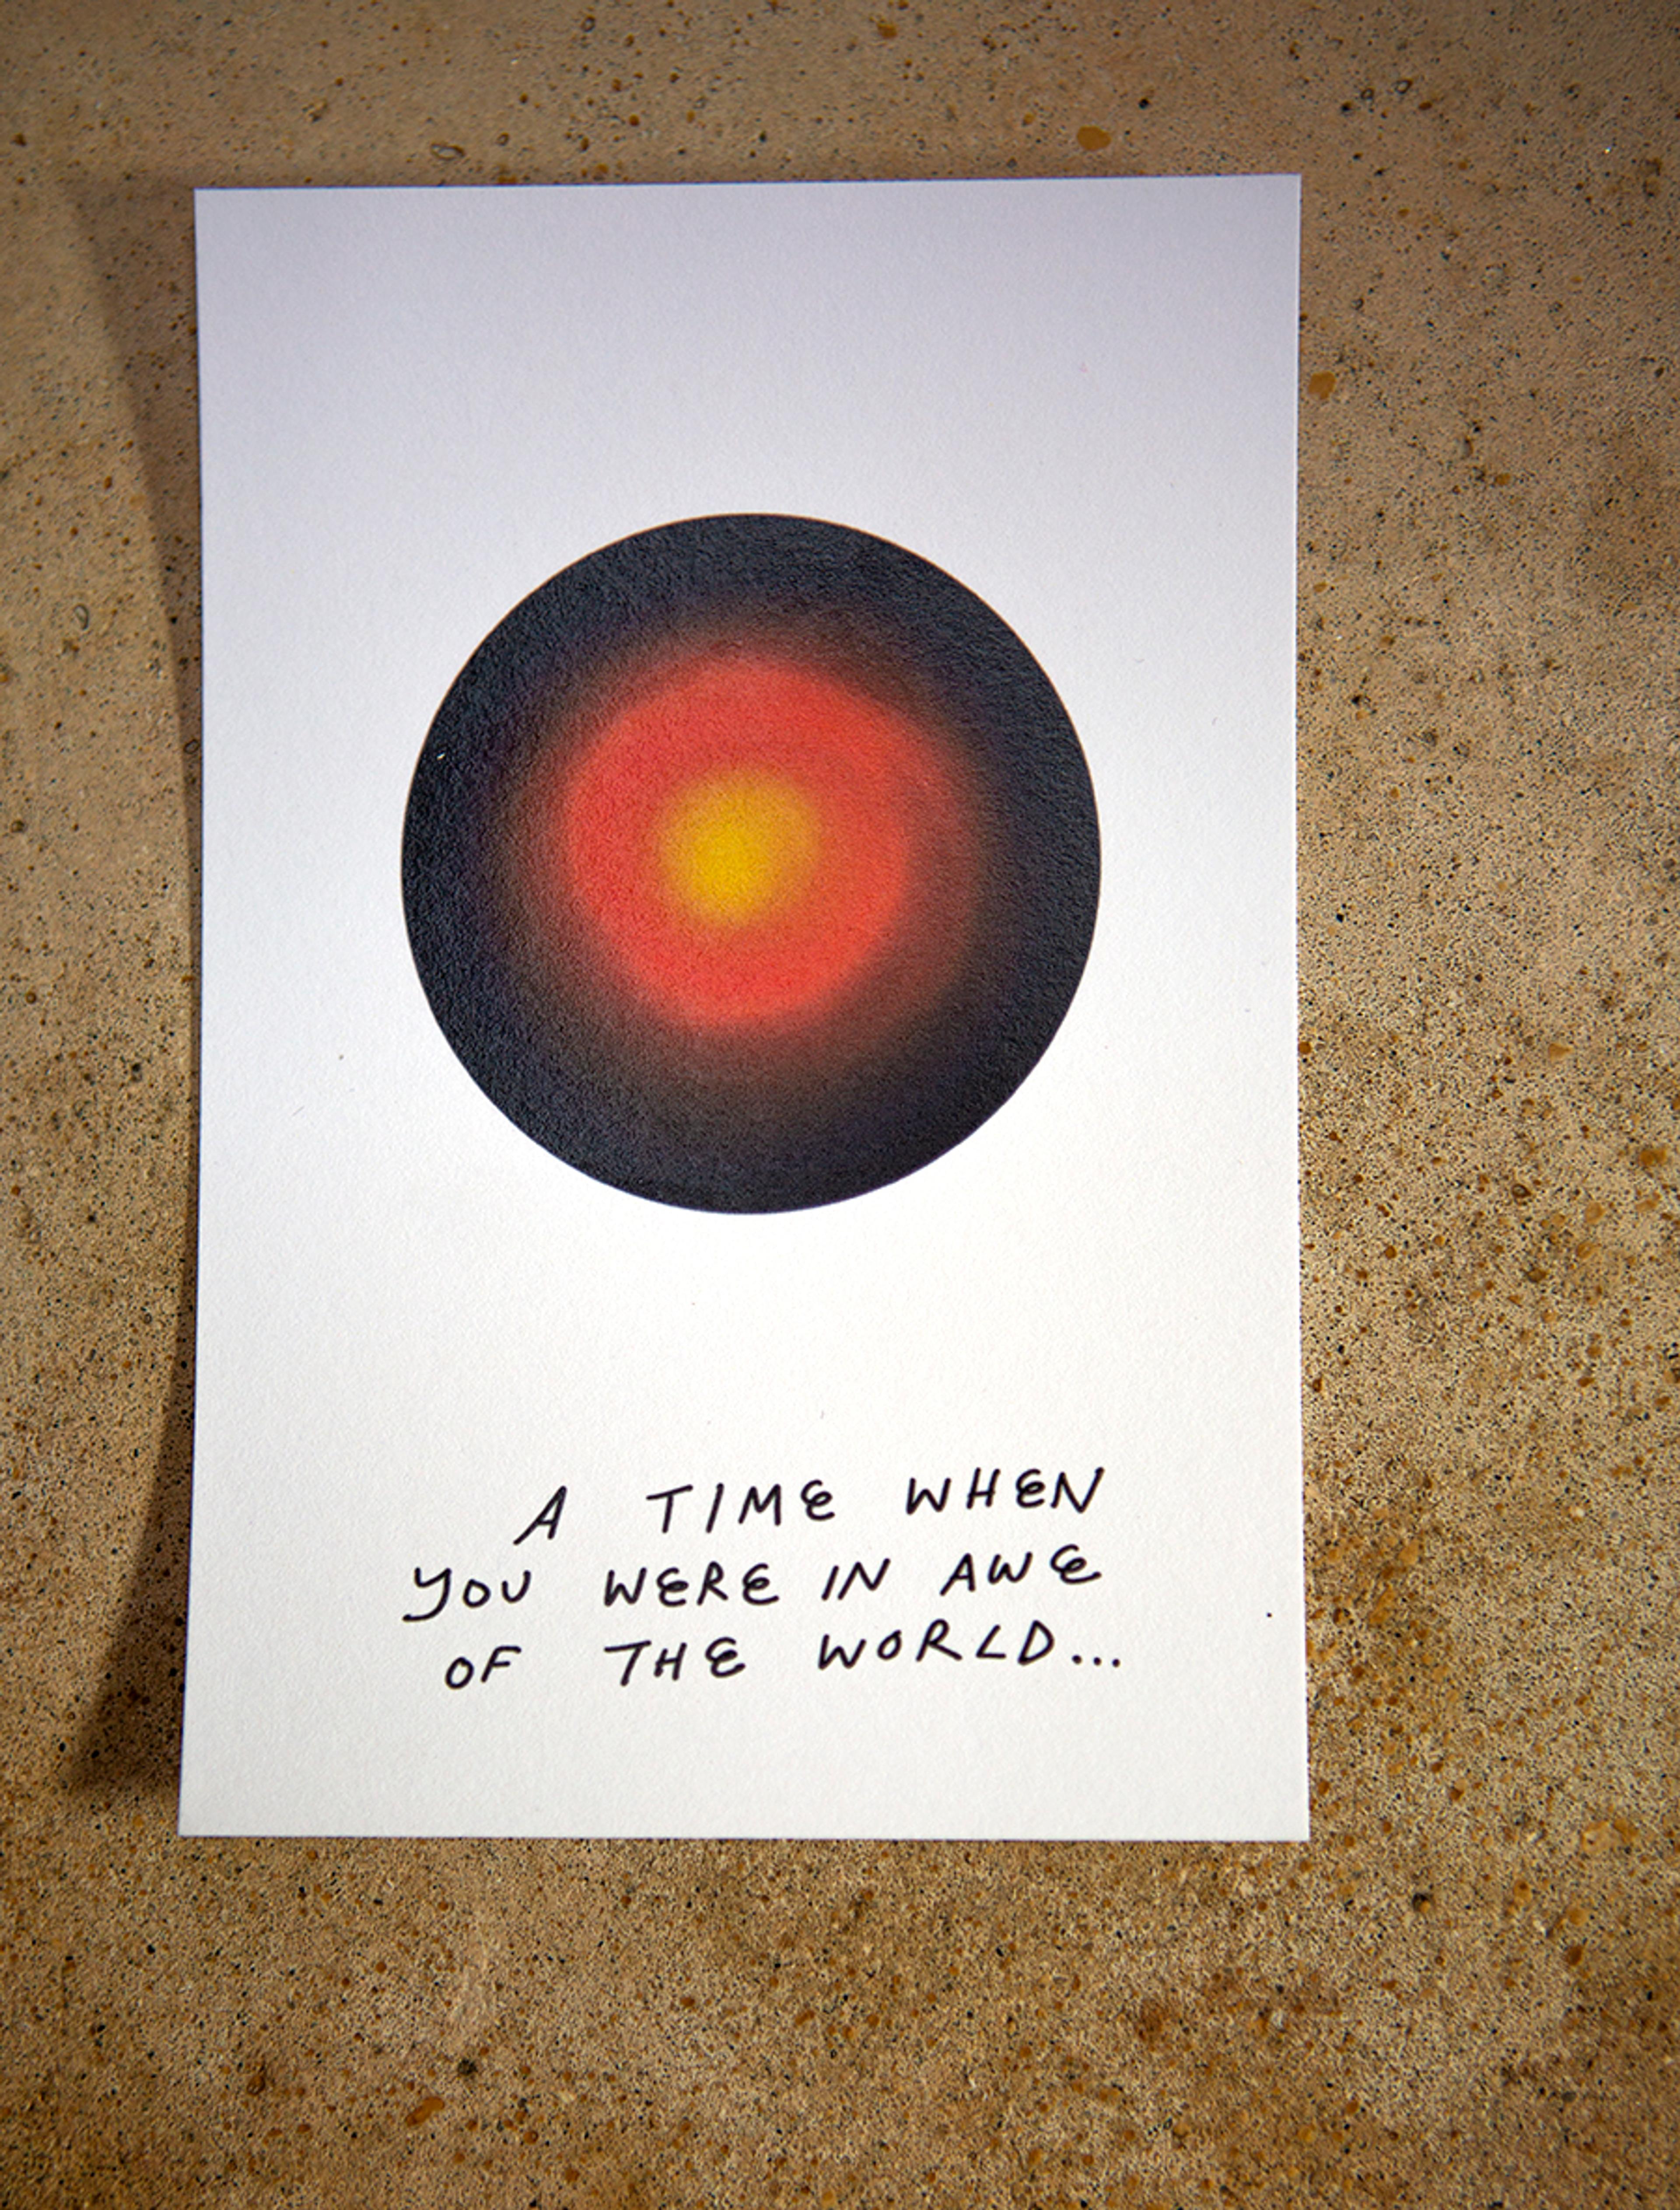 A TIME WHEN
YOU WERE IN AWE
OF THE WORLD...